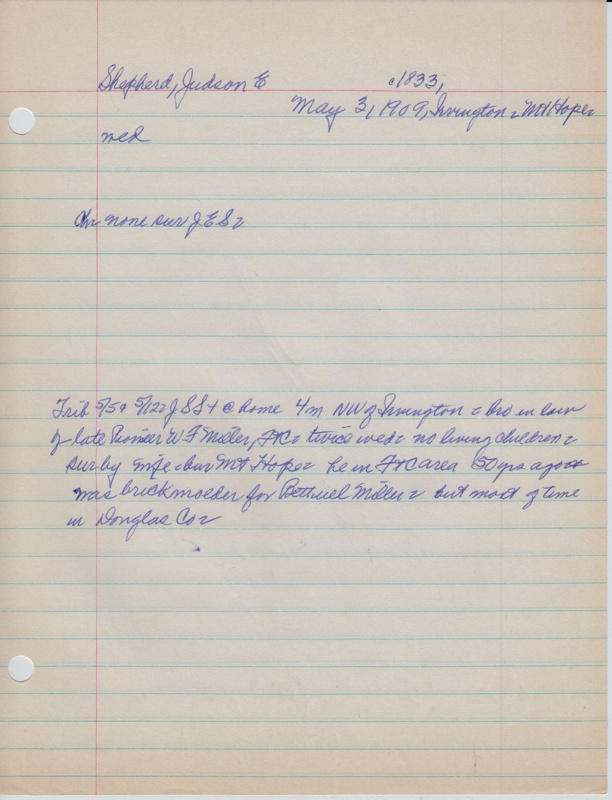 Shepherd, Judson E c1833,
May 3, 1909, Irvington - Mt Hope-
wed
Chr none sur J E S-
Trib 5/5 & 5/12- J S S+ @ home 4 m NW of Irvington - bro in law
of late Pioneer W F Miller, FtC- twice wed- no living children-
sur by wife - bur Mt Hope- he in FtC area 50 yrs ago
was brick molder for Bethuel Miller - but most of time
in Douglas Co-